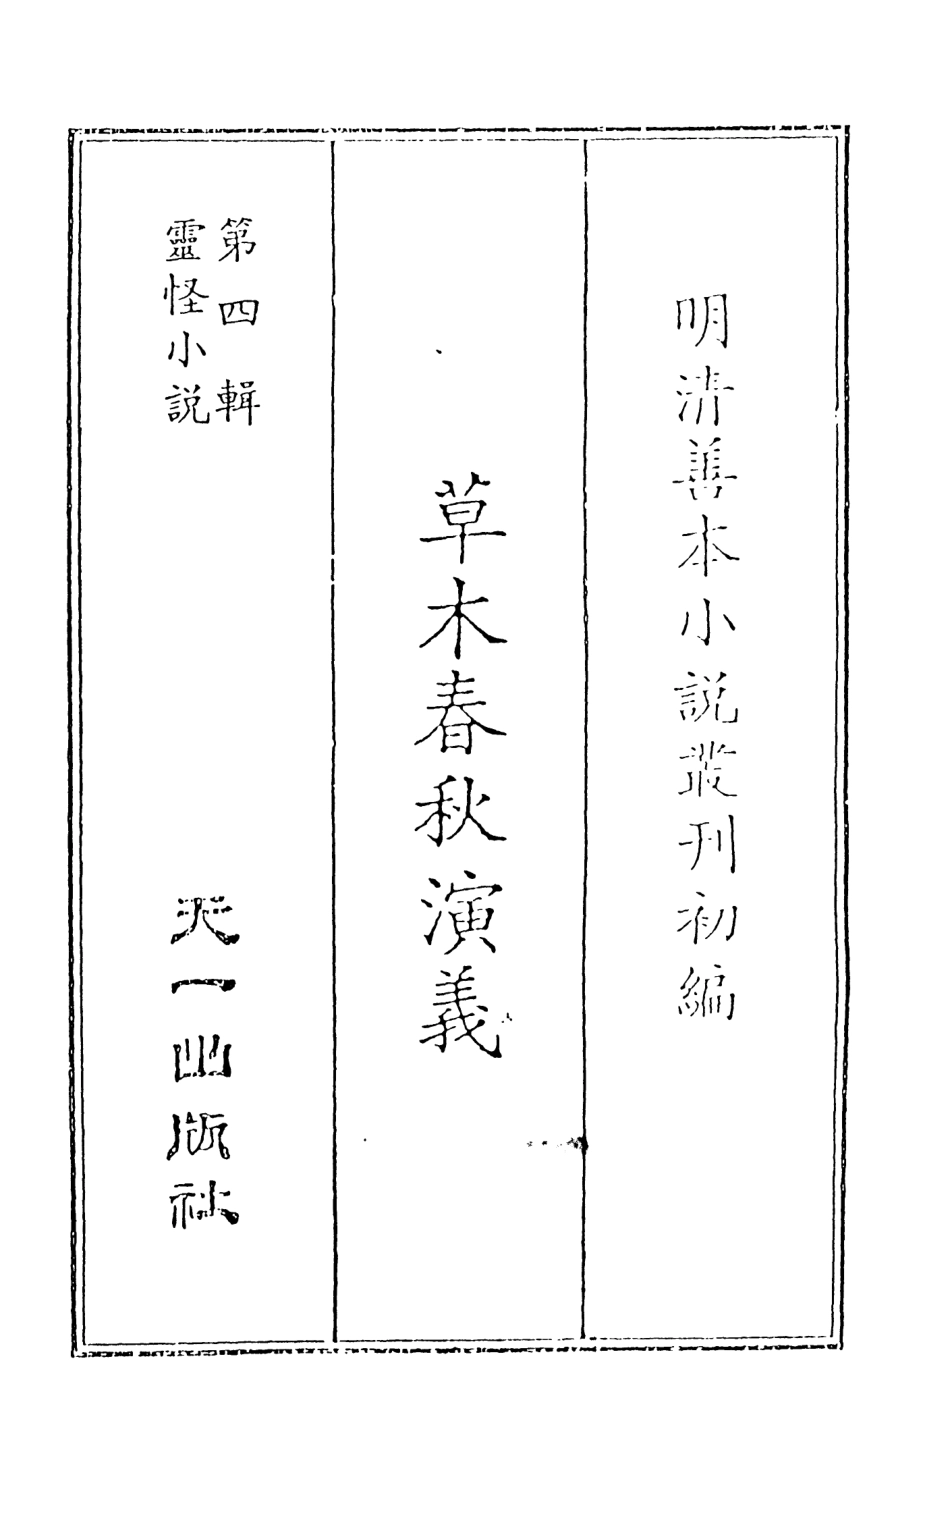 明清善本小說叢刊初編
草木春秋演義
第四輯
靈怪小說
天一出版社